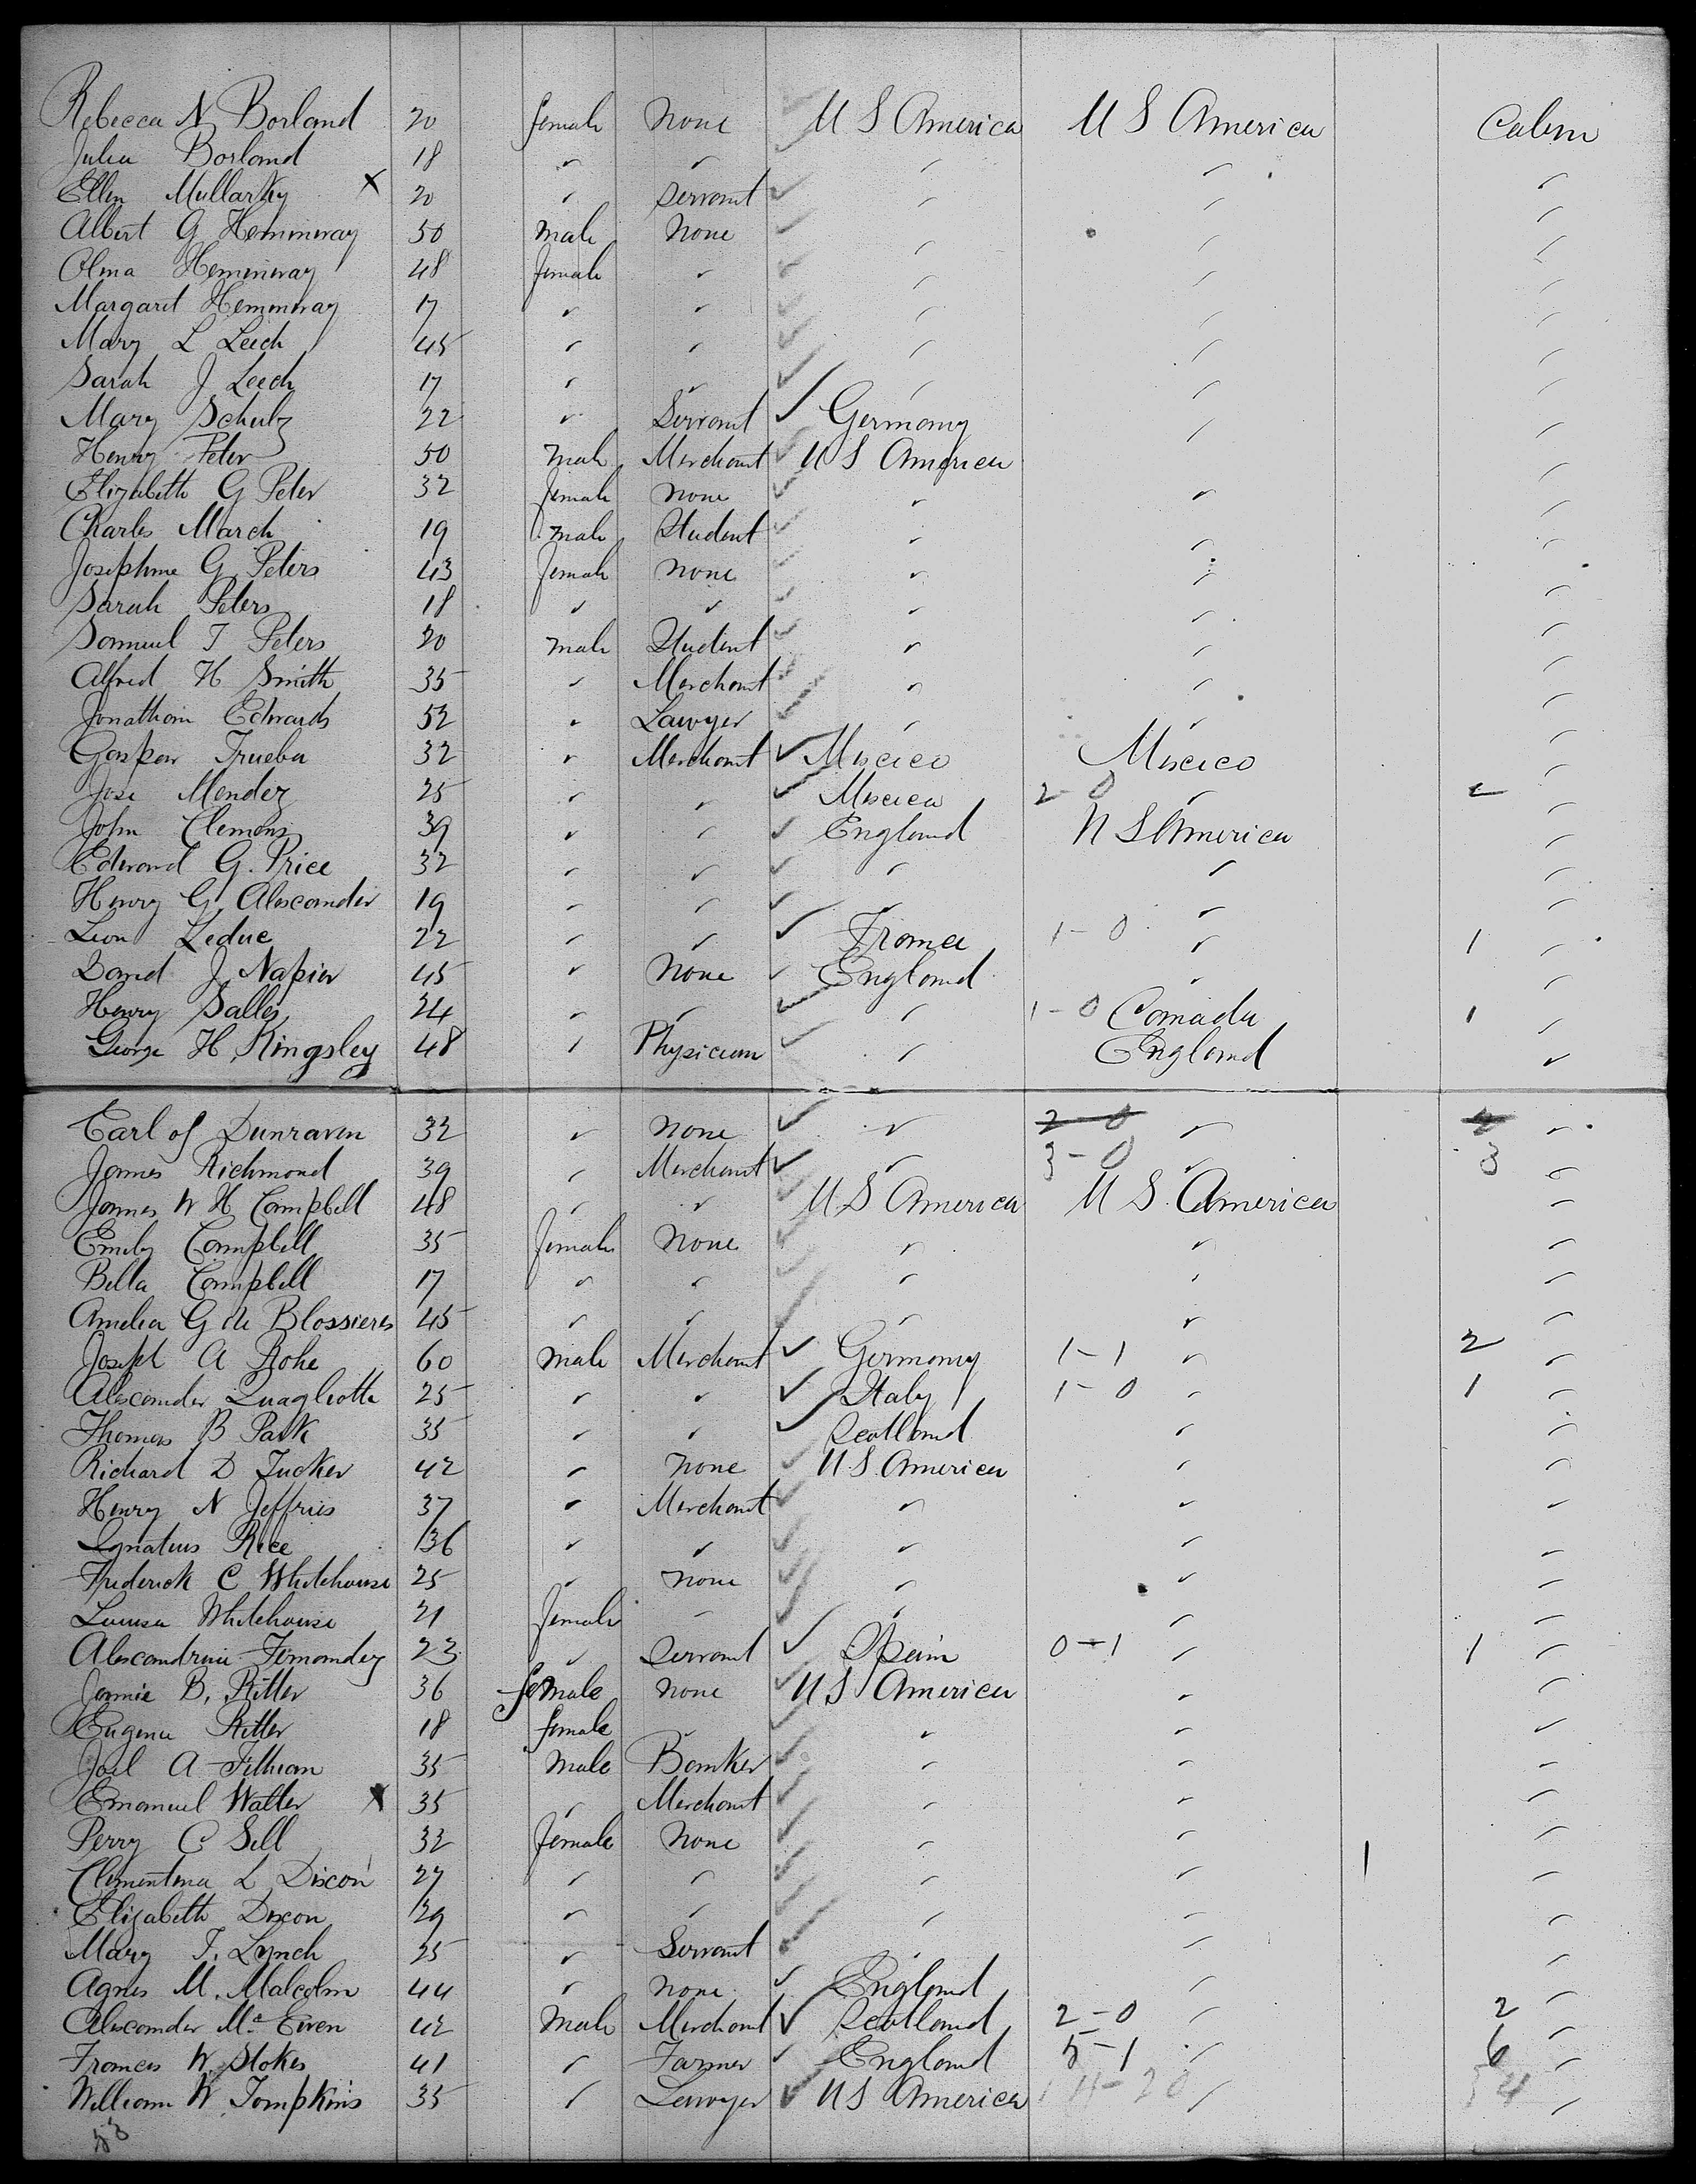 Rebecca N Borland 20 female None U S America U S America Cabin
Julia Borland 18 " " " " "
Ellen Mullarky X 20 " Servant " " "
Albert G Hemmway 50 male None " " "
Alma Hemmway 48 female " " " "
Margaret Hemmway 17 " " " " "
Mary L Leech 45 " " " " "
Sarah J Leech 17 " " " " "
Mary Schulz 22 " Servant Germany " "
Henry Peter 50 male Merchant U S America " "
Elizabeth G Peter 32 female None " " "
Charles March 19 male Student " " "
Josephine G Peters 43 female None " " "
Sarah Peters 18 " " " " "
Samuel T Peters 20 male Student " " "
Alfred H Smith 35 " Merchant " " "
Jonathan Edwards 52 " Lawyer " " "
Gaspar Trueba 32 " Merchant Mexico Mexico "
Jose Mendez 25 " " Mexico 2-0 " 2 "
John Clemens 39 " " England U S America "
Edward G. Price 32 " " " " "
Henry G Alexander 19 " " " " "
Leon Leduc 22 " " France 1-0 " 1 "
David J Napier 45 " None England " "
Henry Salles 24 " " " 1-0 Canada 1 "
George H Kingsley 48 " Physician " England "
Earl of Dunraven 32 " None " 2-0 " "
James Richmond 39 " Merchant " 3-0 " 3 "
James W H Campbell 48 " " U S America U S America "
Emily Campbell 35 female None " " "
Bella Campbell 17 " " " " "
Amelia G de Blossieres 45 " " " " "
Joseph A Rohe 60 male Merchant Germany 1-1 " 2 "
Alexander Quagliotte 25 " " Italy 1-0 " 1 "
Thomas B Park 35 " " Scotland " "
Richard D Tucker 42 " None U S America " "
Henry N Jeffries 37 " Merchant " " "
Ignatius Rice 36 " " " " "
Frederick C Whitehouse 25 " None " " "
Louisa Whitehouse 21 female " " " "
Alexandrine Fernandez 23 " Servant Spain 0-1 " 1 "
Jannie B. Ritter 36 female None U S America " "
Eugenia Ritter 18 female " " "
Joel A Fithian 35 male Banker " " "
Emanuel Walter X 35 " Merchant " " "
Perry C Sell 32 female None " " 1 "
Clementina L Dixon 27 " " " " "
Elizabeth Dixon 29 " " " " "
Mary T. Lynch 25 " Servant " " "
Agnes M. Malcolm 44 " None England " "
Alexander Mc Ewen 42 male Merchant Scotland 2-0 " 2 "
Frances W Stokes 41 " Farmer England 5-1 " 6 "
William W Tompkins 35 " Lawyer U S America " "
53